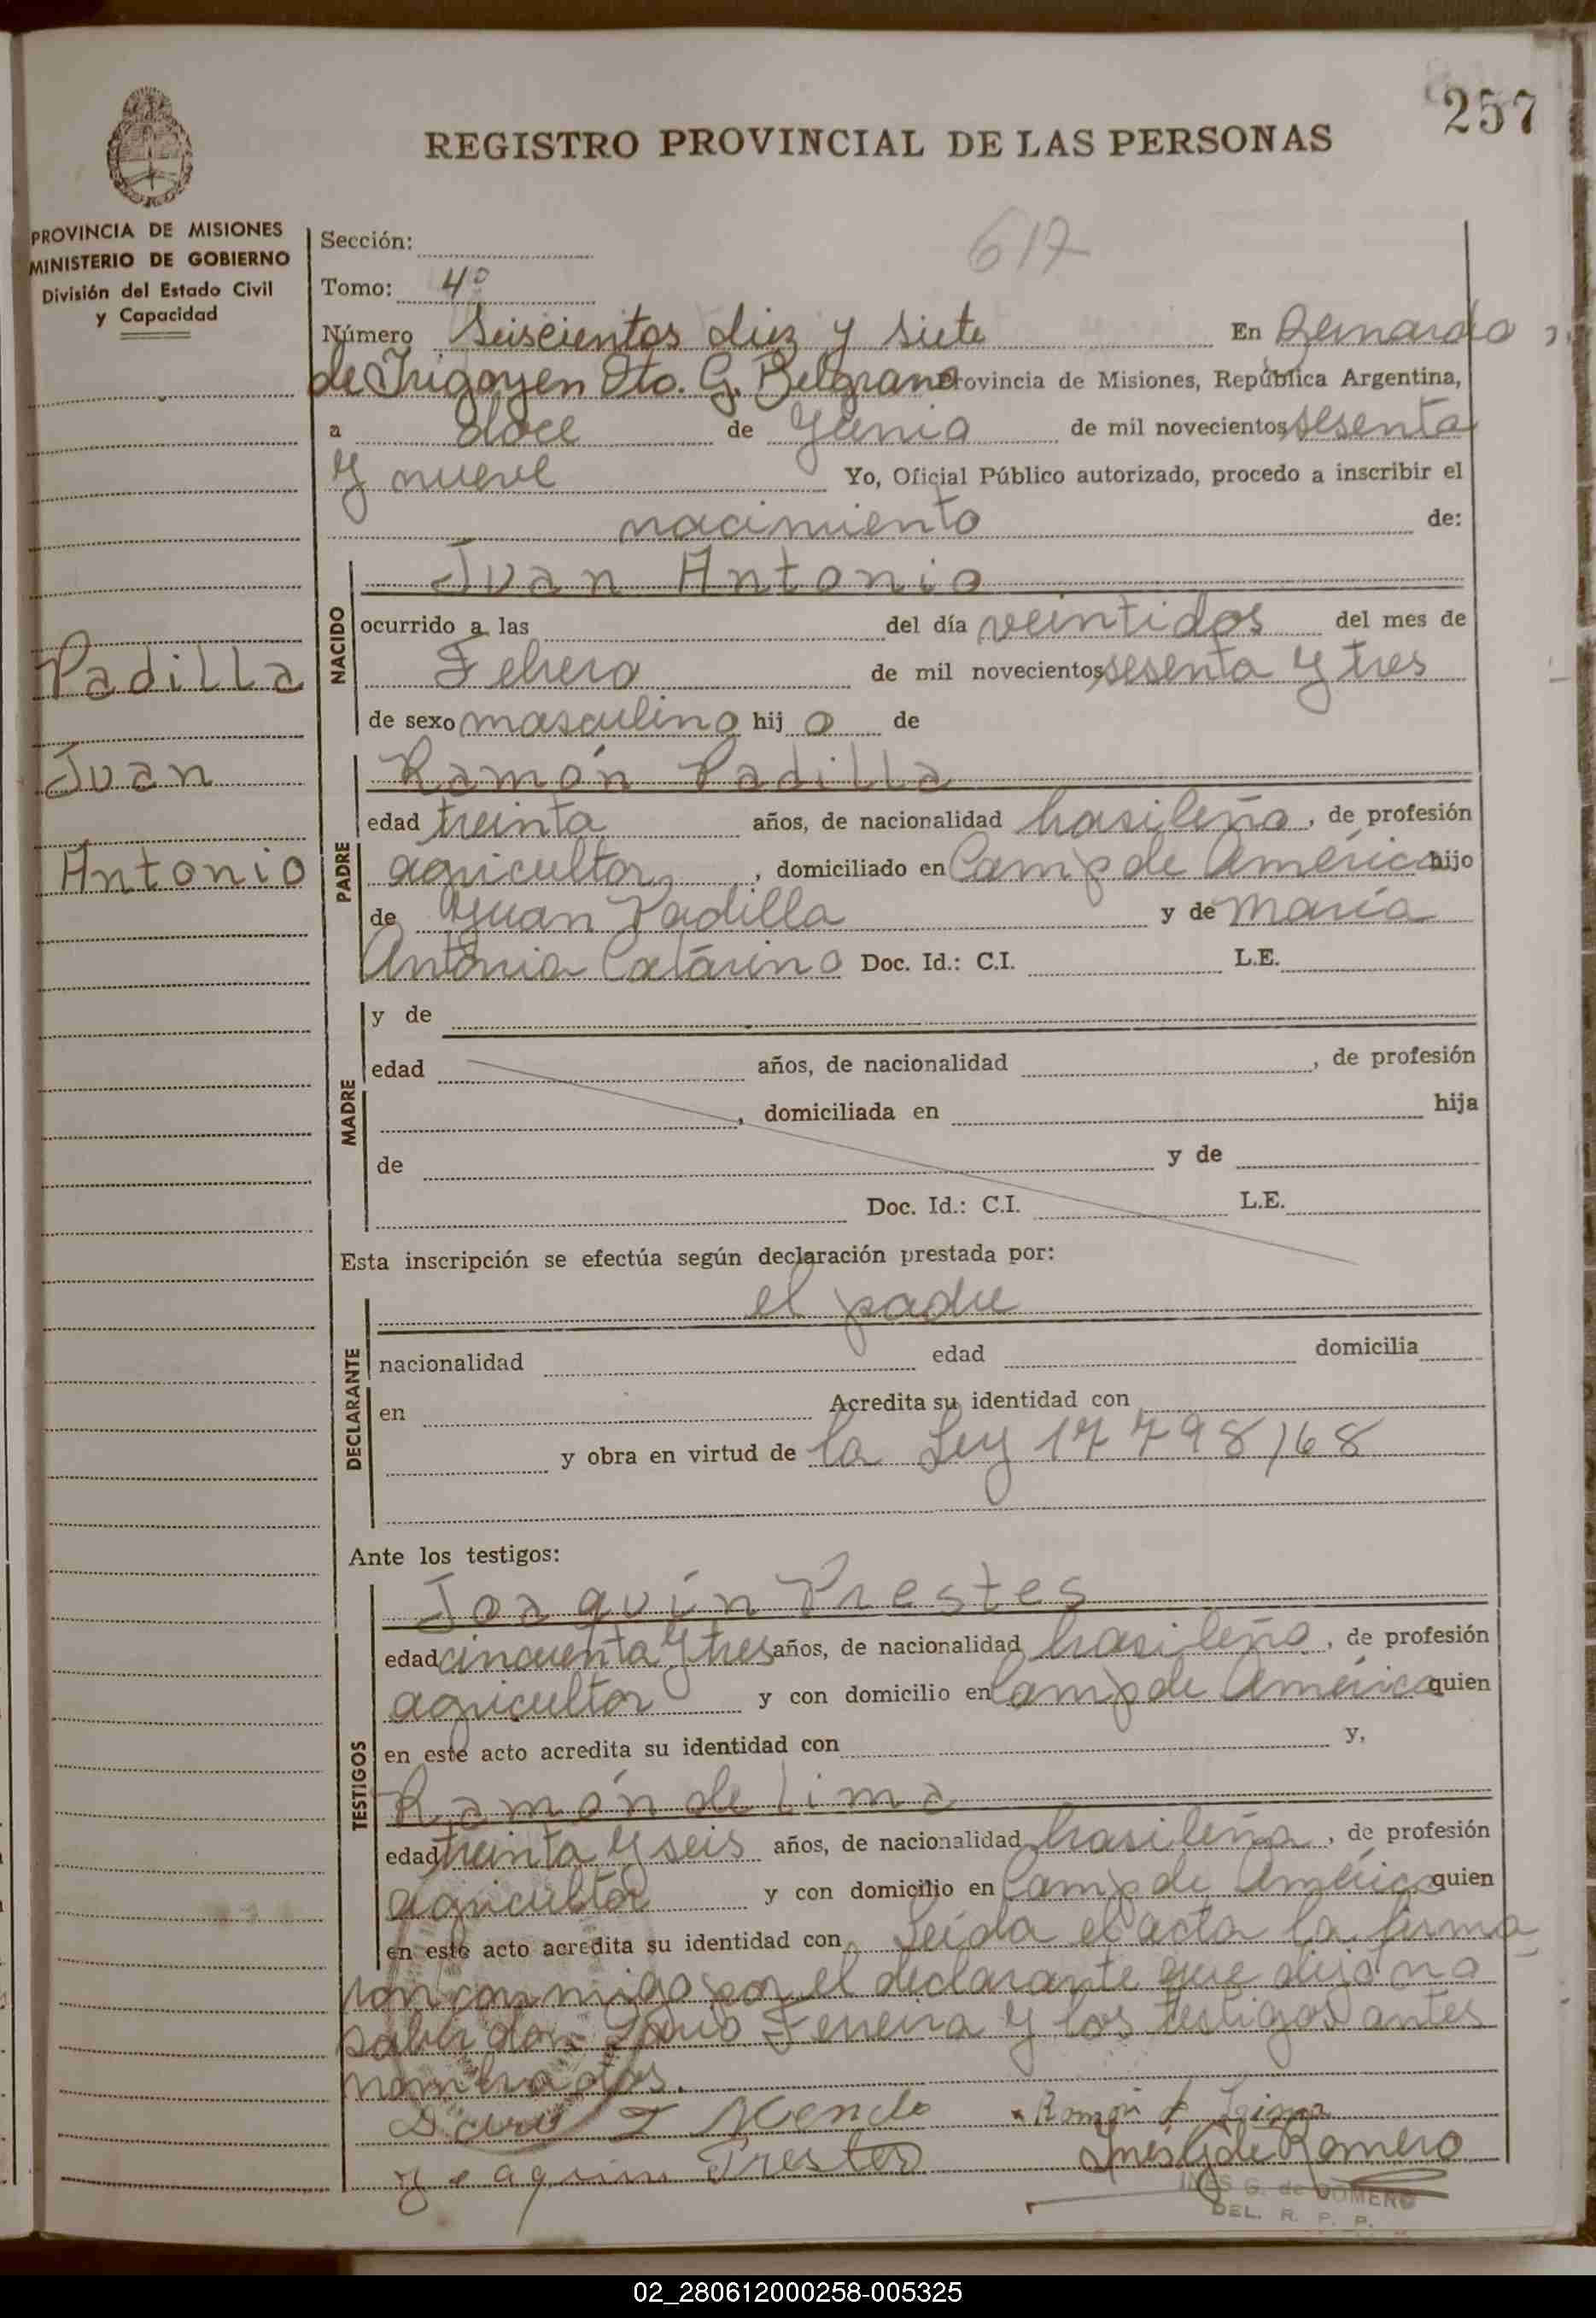 257
REGISTRO PROVINCIAL DE LAS PERSONAS
PROVINCIA DE MISIONES
MINISTERIO DE GOBIERNO
División del Estado Civil
y Capacidad
617
Sección:
Tomo: 4º
Número Seiscientos diez y siete En Bernardo
de Irigoyen Dto. G. Belgrano Provincia de Misiones, República Argentina,
a doce de Junio de mil novecientos sesenta
y nueve Yo, Oficial Público autorizado, procedo a inscribir el
nacimiento de:
NACIDO
Juan Antonio
ocurrido a las del día veintidos del mes de
Febrero de mil novecientos sesenta y tres
de sexo masculino hij o de
Padilla
Juan
Antonio
PADRE
Ramón Padilla
edad treinta años, de nacionalidad brasileña, de profesión
agricultor, domiciliado en Camp de América hijo
de Juan Padilla y de María
Antonia Catárino Doc. Id.: C.I. L.E.
MADRE
y de
edad años, de nacionalidad , de profesión
, domiciliada en hija
de y de
Doc. Id.: C.I. L.E.
Esta inscripción se efectúa según declaración prestada por:
DECLARANTE
el padre
nacionalidad edad domicilia
en Acredita su identidad con
y obra en virtud de la Ley 17798/68
Ante los testigos:
TESTIGOS
Joaquín Prestes
edad cincuenta y tres años, de nacionalidad brasileño, de profesión
agricultor y con domicilio en Camp de América quien
en este acto acredita su identidad con y,
Ramón de Lima
edad treinta y seis años, de nacionalidad brasileña, de profesión
agricultor y con domicilio en Camp de América quien
en este acto acredita su identidad con Leída el acta la firma
ron conmigo por el declarante que dijo no
saber don Ferreira y los testigos antes
nombrados.
Ramón d Leima
Joaquim Prestes Inés G de Romero
INES G. de ROMERO
DEL. R. P. P.
02_280612000258-005325